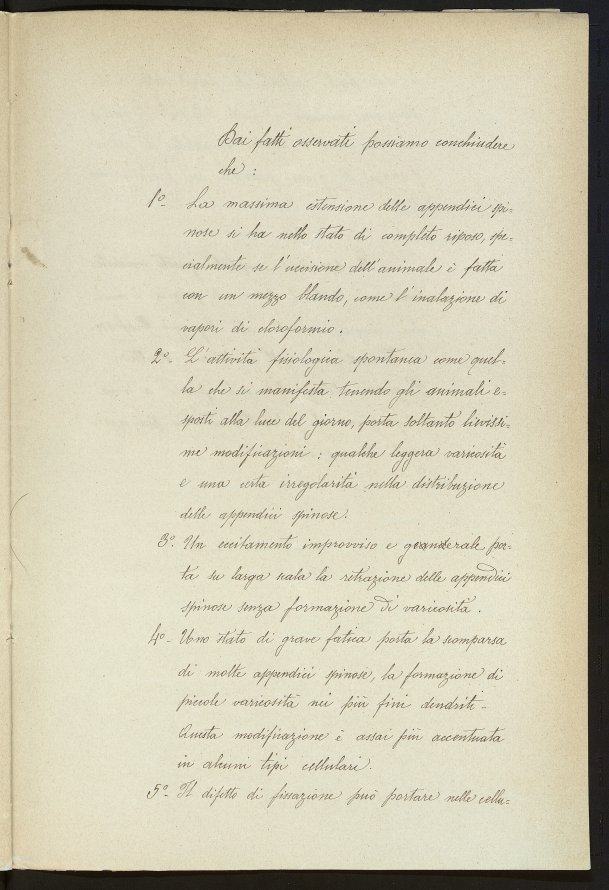 Dai fatti osservati possiamo conchiudere
che :
1º La massima estensione delle appendici spi-
nose si ha nello stato di completo riposo, spe-
cialmente se l'uccisione dell'animale è fatta
con un mezzo blando, come l'inalazione di
vapori di cloroformio.
2º- L'attività fisiologica spontanea come quel-
la che si manifesta tenendo gli animali e-
sposti alla luce del giorno, porta soltanto lievissi-
me modificazioni : qualche leggera varicosità
e una certa irregolarità nella distribuzione
delle appendici spinose.
3º. Un eccitamento improvviso e generale por-
ta su larga scala la retrazione delle appendici
spinose senza formazione di varicosità.
4º- Uno stato di grave fatica porta la scomparsa
di molte appendici spinose, la formazione di
piccole varicosità nei più fini dendriti-
Questa modificazione è assai più accentuata
in alcuni tipi cellulari.
5º- Il difetto di fissazione può portare nelle cellu-